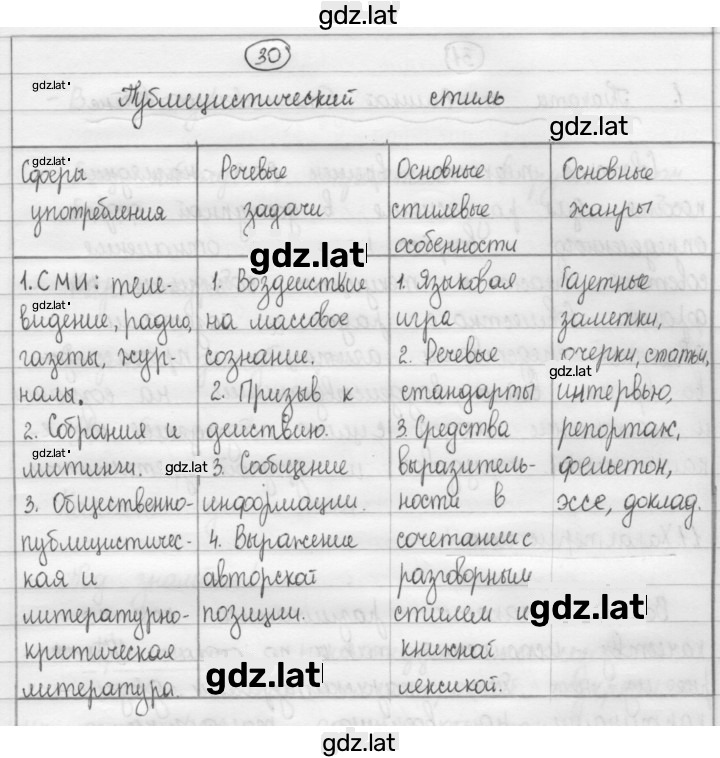 gdz.lat
30
gdz.lat
Публицистический стиль
gdz.lat
gdz.lat
Сферы
употребления
Речевые
задачи
Основные
стилевые
особенности
Основные
жанры
gdz.lat
1. СМИ: теле-
gdz.lat
видение, радио,
газеты, жур-
налы.
2. Собрания и
gdz.lat
митинги.
3. Общественно-
публицистичес-
кая и
литературно-
критическая
литература.
1. Воздействие
на массовое
сознание.
2. Призыв к
действию.
gdz.lat
3. Сообщение
информации.
4. Выражение
авторской
позиции.
gdz.lat
1. Языковая
игра
2. Речевые
стандарты
3. Средства
выразитель-
ности в
сочетании с
разговорным
стилем и
книжной
лексикой.
Газетные
заметки,
очерки, статьи,
gdz.lat
интервью,
репортаж,
фельетон,
эссе, доклад.
gdz.lat
gdz.lat